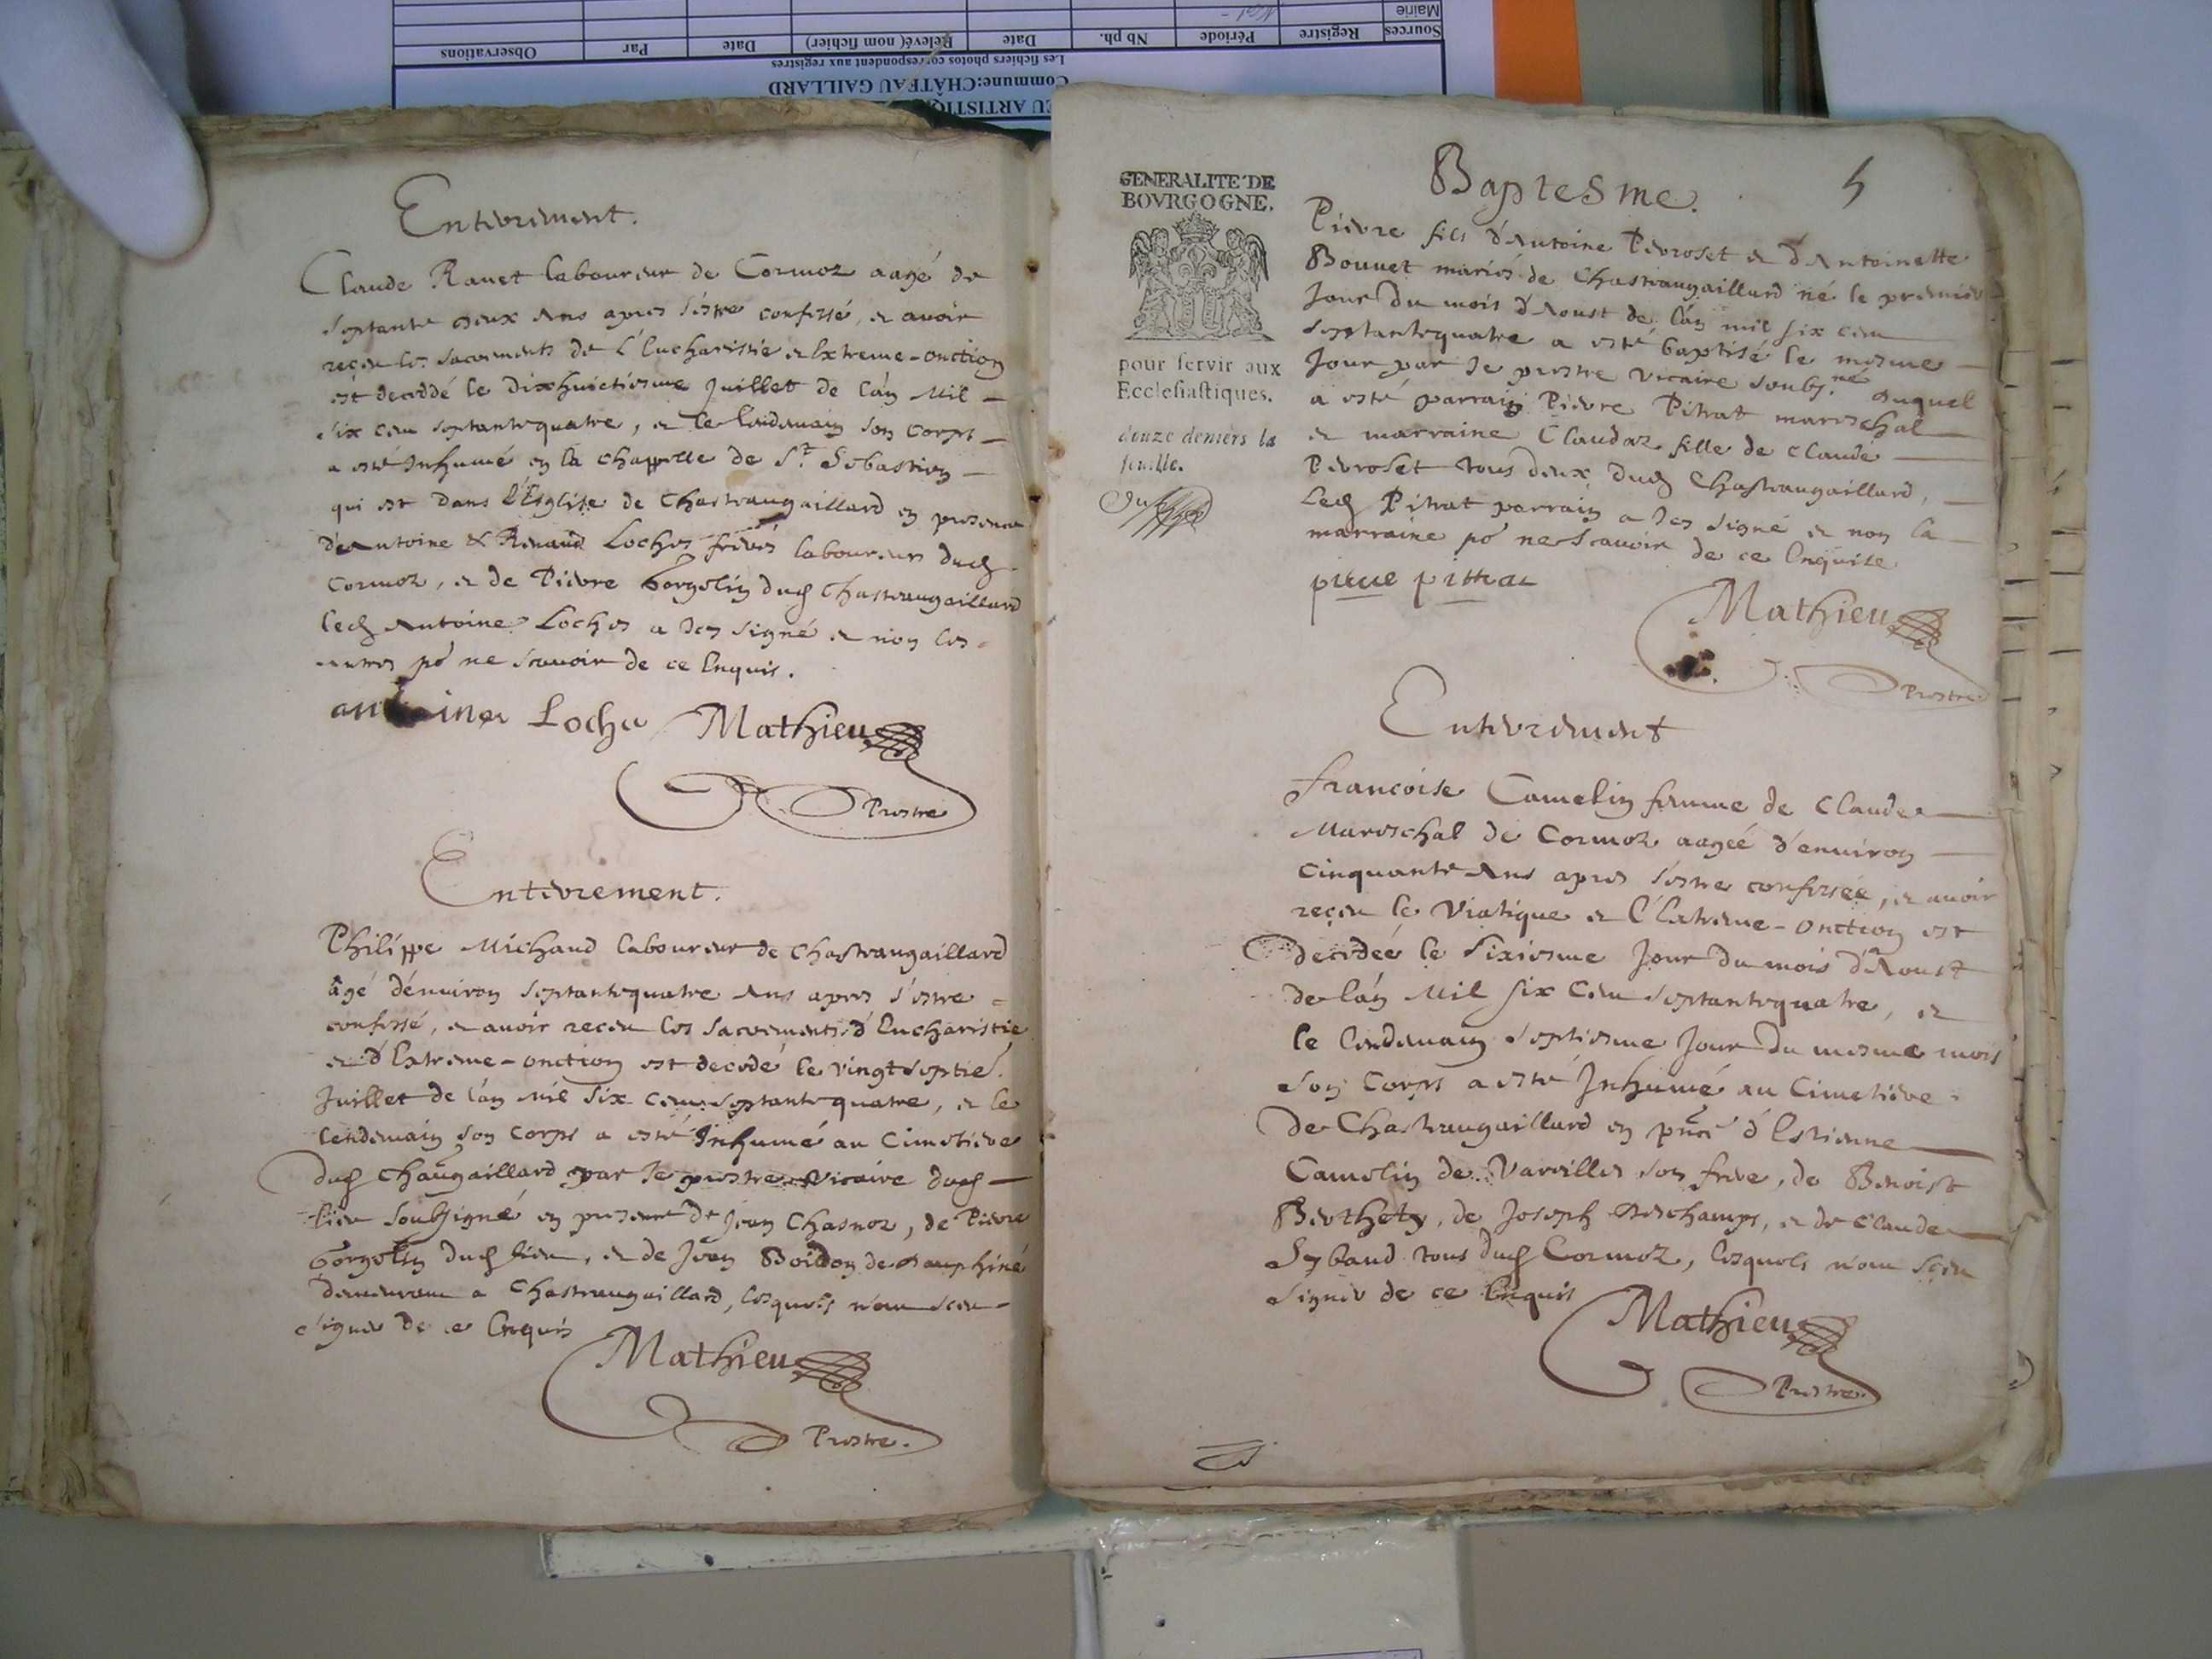 EU ARTISTIQU
Commune:CHÂTEAU GAILLARD
Les fichiers photos correspondent aux registres
Sources Registre Période Nb ph. Date Relevé( nom fichier) Date Par Observations
Mairie
Enterrement.
Claude Ravet laboureur de Cormoz aagé de
septante deux ans apres s'estre confessé, et avoir
reçeu les sacrements de l'Eucharistie et Extreme-onction
est decedé le dixhuictiesme Juillet de l'an Mil
six cens septantequatre, et le lendemain son corps
a esté Inhumé en la chappelle de St. Sebastien
qui est dans l'Eglise de Chasteaugaillard en presence
d'Antoine & Renaud Loches freres laboureurs dud
Cormoz, et de Pierre Gorgolin dud Chasteaugaillard
led Antoine Loches a Icy signé et non les
autres po ne scavoir de ce Enquis.
antoine Loche Mathieu
Prestre
Enterrement.
Philippe Michaud laboureur de Chasteaugaillard
âgé d'environ septantequatre ans apres s'estre
confessé, et avoir receu les Sacrements d'Eucharistie
et d'Extreme-onction est decedé le vingtseptie.
Juillet de l'an mil six cens septantequatre, et le
lendemain son corps a esté Inhumé au Cimetiere
dud Chaugaillard par Je prestre vicaire dud
lieu soubsigné en presence de Jean Chasnoz, de Pierre
Gorgolin dud lieu, et de Jean Boidon de Dauphiné
demeurant a Chasteaugaillard, lesquels n'ont sceu
signer de ce Enquis
Mathieu
Prestre.
5
GENERALITE DE
BOVRGOGNE.
pour servir aux
Ecclesiastiques.
douze deniers la
feuille.
Baptesme.
Pierre fils d'Antoine Perroset et d'Antoinette
Bouvet mariés de Chasteaugaillard né le premier
Jour du mois d'Aoust de l'an mil six cens
septantequatre a esté baptisé le mesme
Jour par Je prestre vicaire soubs.né auquel
a esté parrain Pierre Pitrat mareschal
et marraine Claudaz fille de Claude
Perroset tous deux dud Chasteaugaillard,
Led Pitrat parrain a Icy signé et non la
marraine po ne scavoir de ce Enquise
pierre pittrat
Mathieu
Prestre
Enterrement
Francoise Camelin femme de Claude
Mareschal de Cormoz aageé d'environ
cinquante ans apres s'estre confessée, et avoir
reçeu le Viatique et l'Extreme-onction est
decedée le sixiesme Jour du mois d'Aoust
de l'an Mil six cens septantequatre, et
le lendemain septiesme Jour du mesme mois
son corps a esté Inhumé au Cimetiere
de Chasteaugaillard en pnce d'Estienne
Camelin de Vareilles son frere, de Benoist
Berthety, de Joseph Deschamps, et de Claude
Sybaud tous dud Cormoz, lesquels n'ont sçeu
signer de ce Enquis
Mathieu
Prestre.